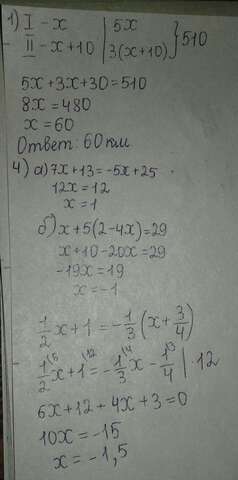 1) I - x | 5x
II - x+10 | 3(x+10) } 510
5x+3x+30=510
8x=480
x=60
Ответ: 60 км
4) а) 7x+13=-5x+25
12x=12
x=1
б) x+5(2-4x)=29
x+10-20x=29
-19x=19
x=-1
1/2x+1=-1/3(x+3/4)
1/2x+1=-1/3x-1/4 | 12
6x+12+4x+3=0
10x=-15
x=-1,5